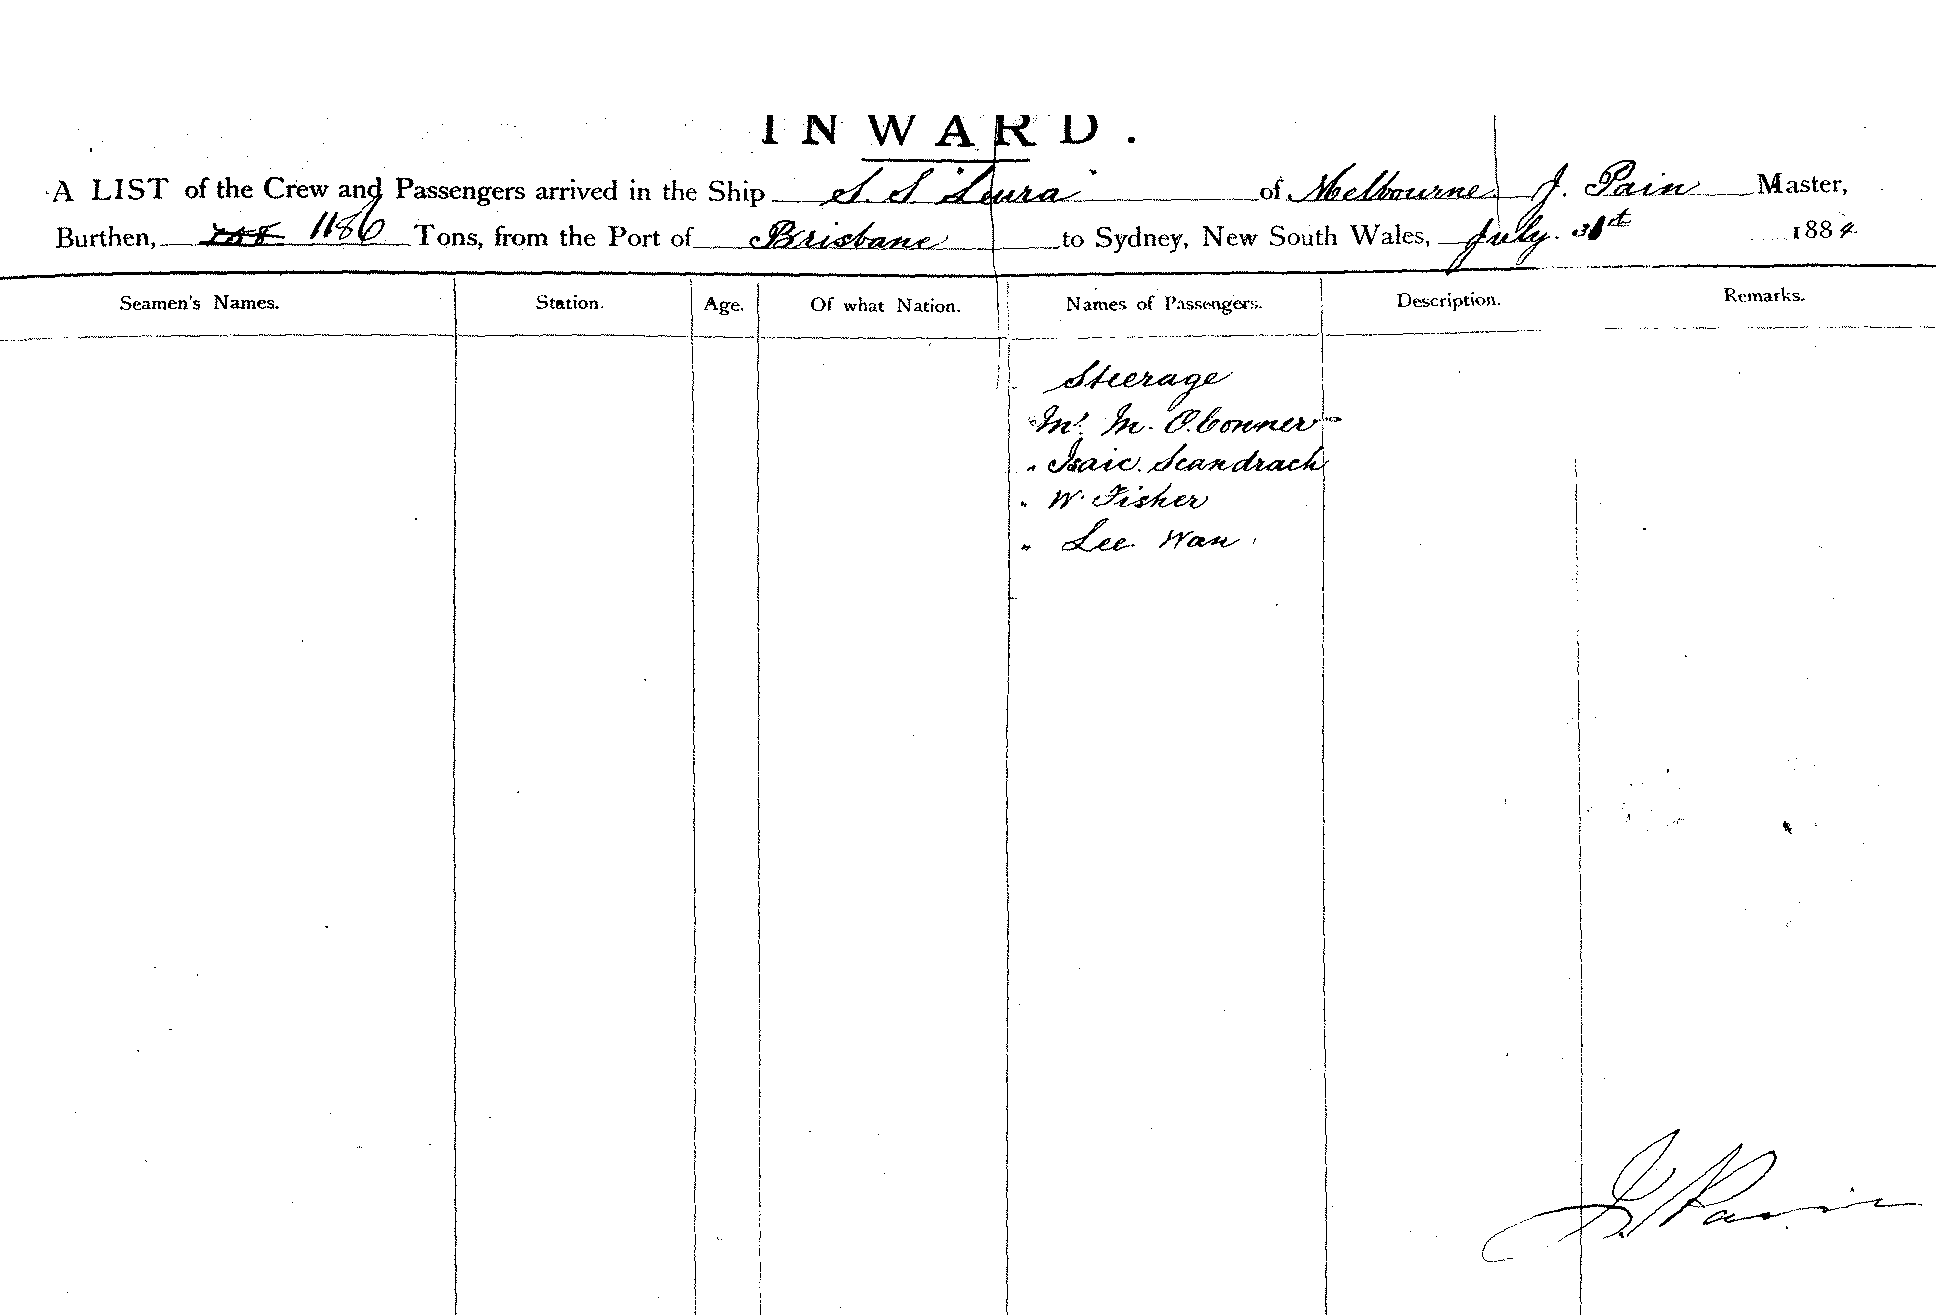 INWARD.
A LIST of the Crew and Passengers arrived in the Ship S. S "Leura" of Melbourne J. Pain Master,
Burthen, 1186 Tons, from the Port of Brisbane to Sydney, New South Wales, July. 31st 1884
Seamen's Names. Station. Age. Of what Nation. Names of Passengers. Description. Remarks.
Steerage
Mr. M. O.Conner
" Isaic. Scandrach
" W. Fisher
" Lee Wan
J. Pain